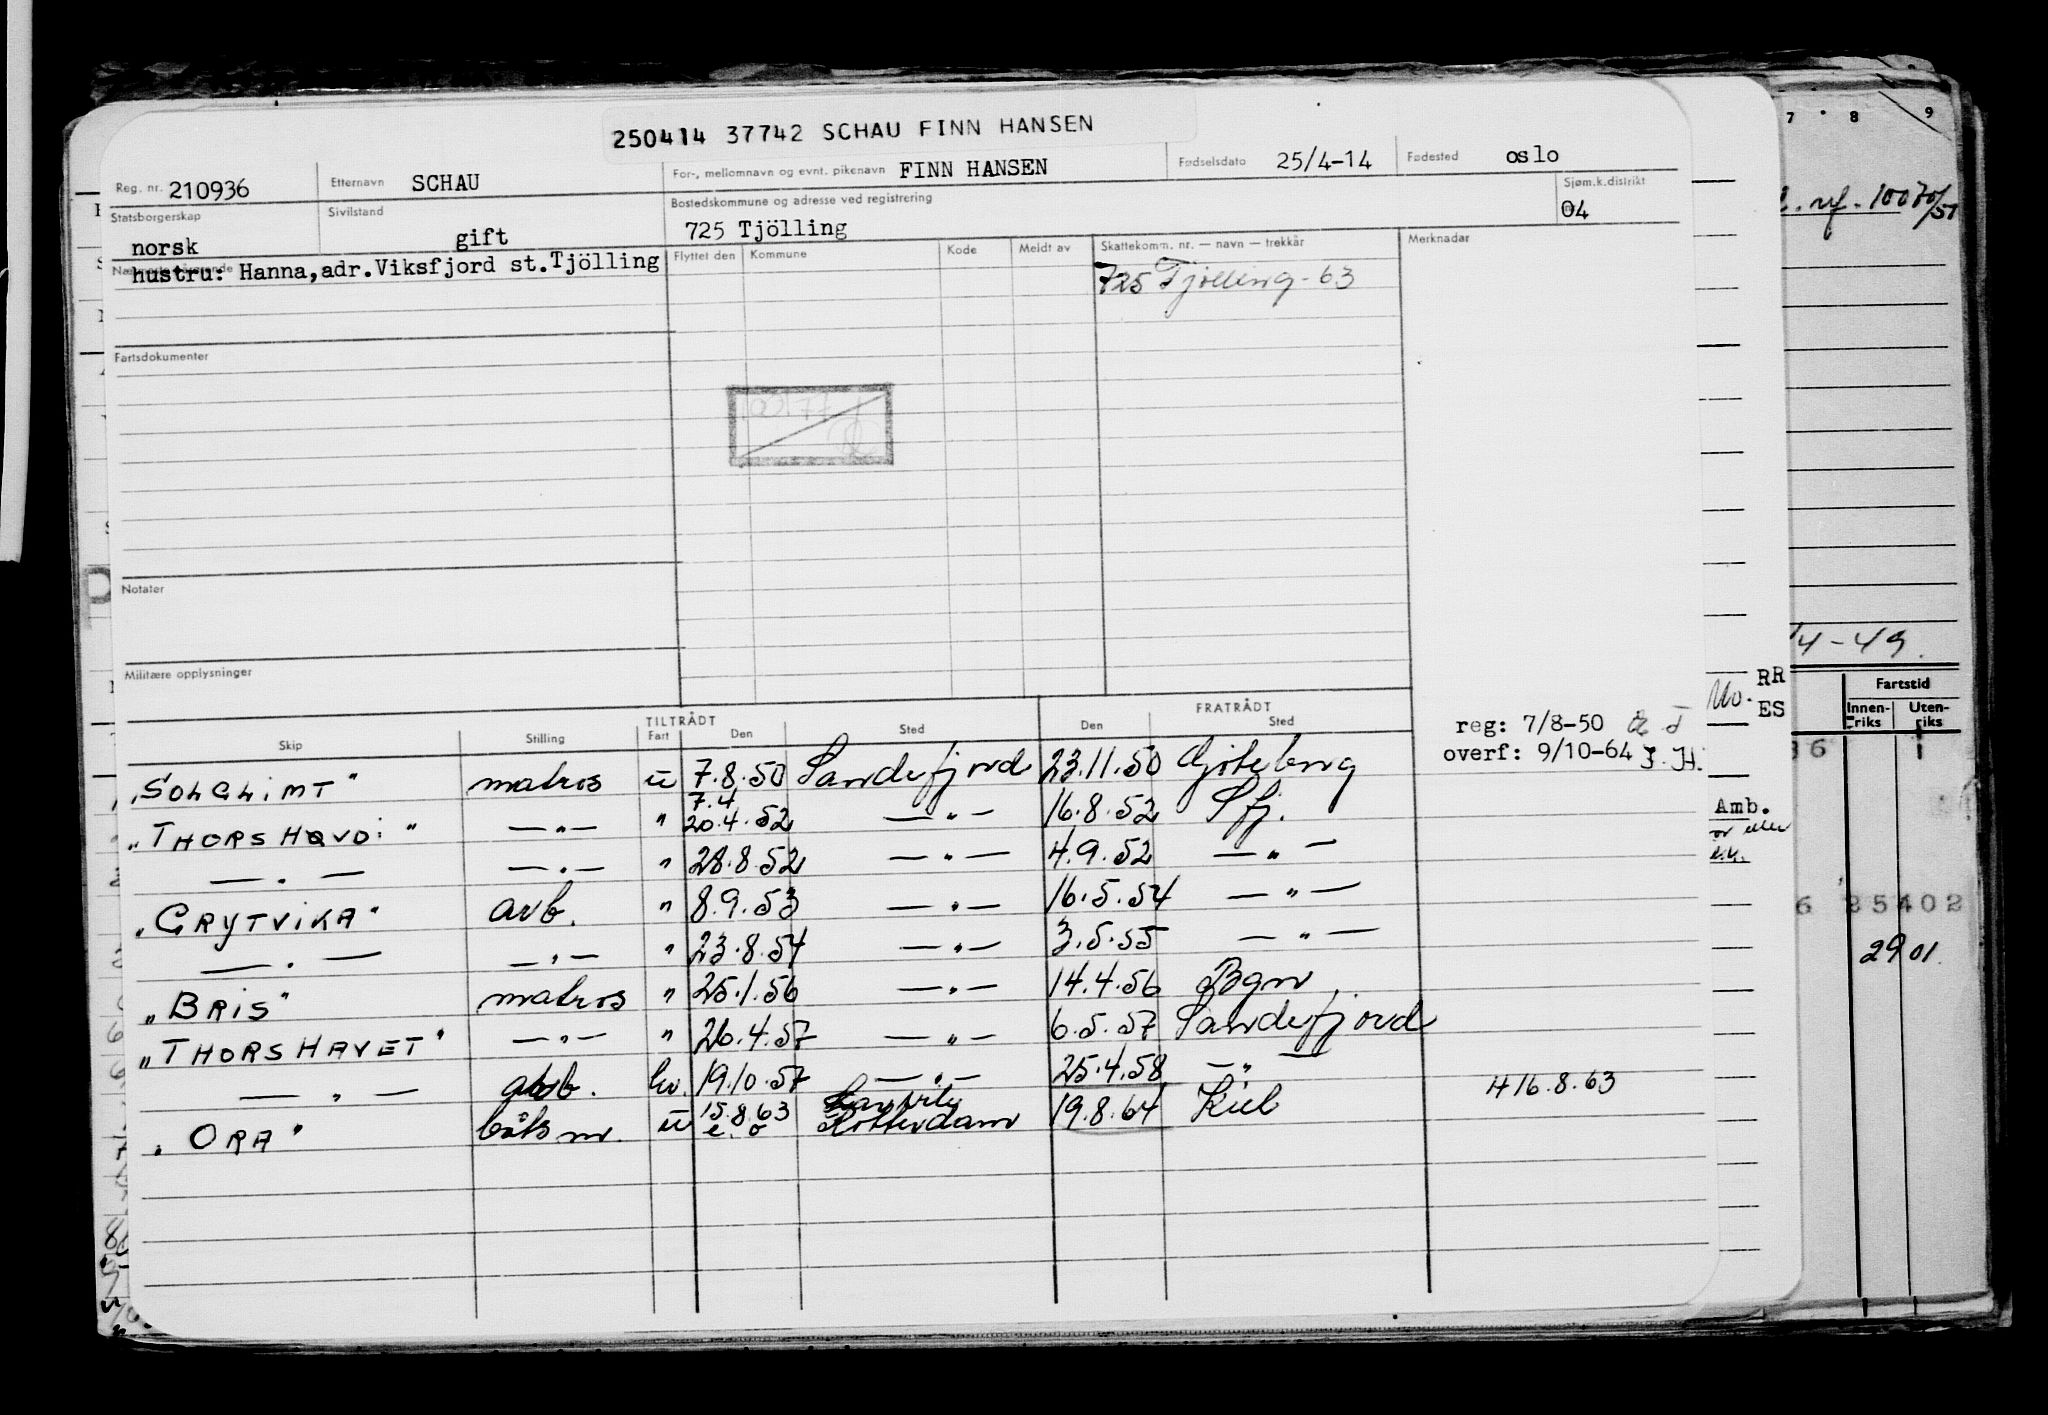 250414 37742 SCHAU FINN HANSEN
Reg. nr. 210936 Etternavn SCHAU For-, mellomnavn og evnt. pikenavn FINN HANSEN Fødselsdato 25/4-14 Fødested oslo
Statsborgerskap norsk Sivilstand gift Bostedskommune og adresse ved registrering 725 Tjölling Sjøm.k.distrikt 04
hustru: Hanna,adr.Viksfjord st.Tjölling
Flyttet den Kommune Kode Meldt av Skattekomm. nr. — navn — trekkår Merknader
725 Tjølling - 63
Fartsdokumenter
Notater
Militære opplysninger
TILTRÅDT FRATRÅDT
Skip Stilling Fart Den Sted Den Sted
reg: 7/8-50
overf: 9/10-64 J. H.
"SOLGLIMT" matros u 7.8.50 Sandefjord 23.11.50 Gøteborg
7.4
"THORSHØVDI" — " — " 20.4.52 — " — 16.8.52 Sfj.
— " — — " — " 28.8.52 — " — 4.9.52 — " —
"GRYTVIKA" arb. " 8.9.53 — " — 16.5.54 — " —
— " — — " — " 23.8.54 — " — 3.5.55 — " —
"BRIS" matros " 25.1.56 — " — 14.4.56 Bgn
"THORSHAVET" — " — " 26.4.57 — " — 6.5.57 Sandefjord
— " — hv. 19.10.57 — " — 25.4.58 — " —
"ORA" båtsm. u 15.8.63 Rotterdam 19.8.64 Kiel 416.8.63
7 8 9
4-49.
RR
ES
Mo.
Fartstid
Innenriks Utenriks
Amb.
6 25402
2901